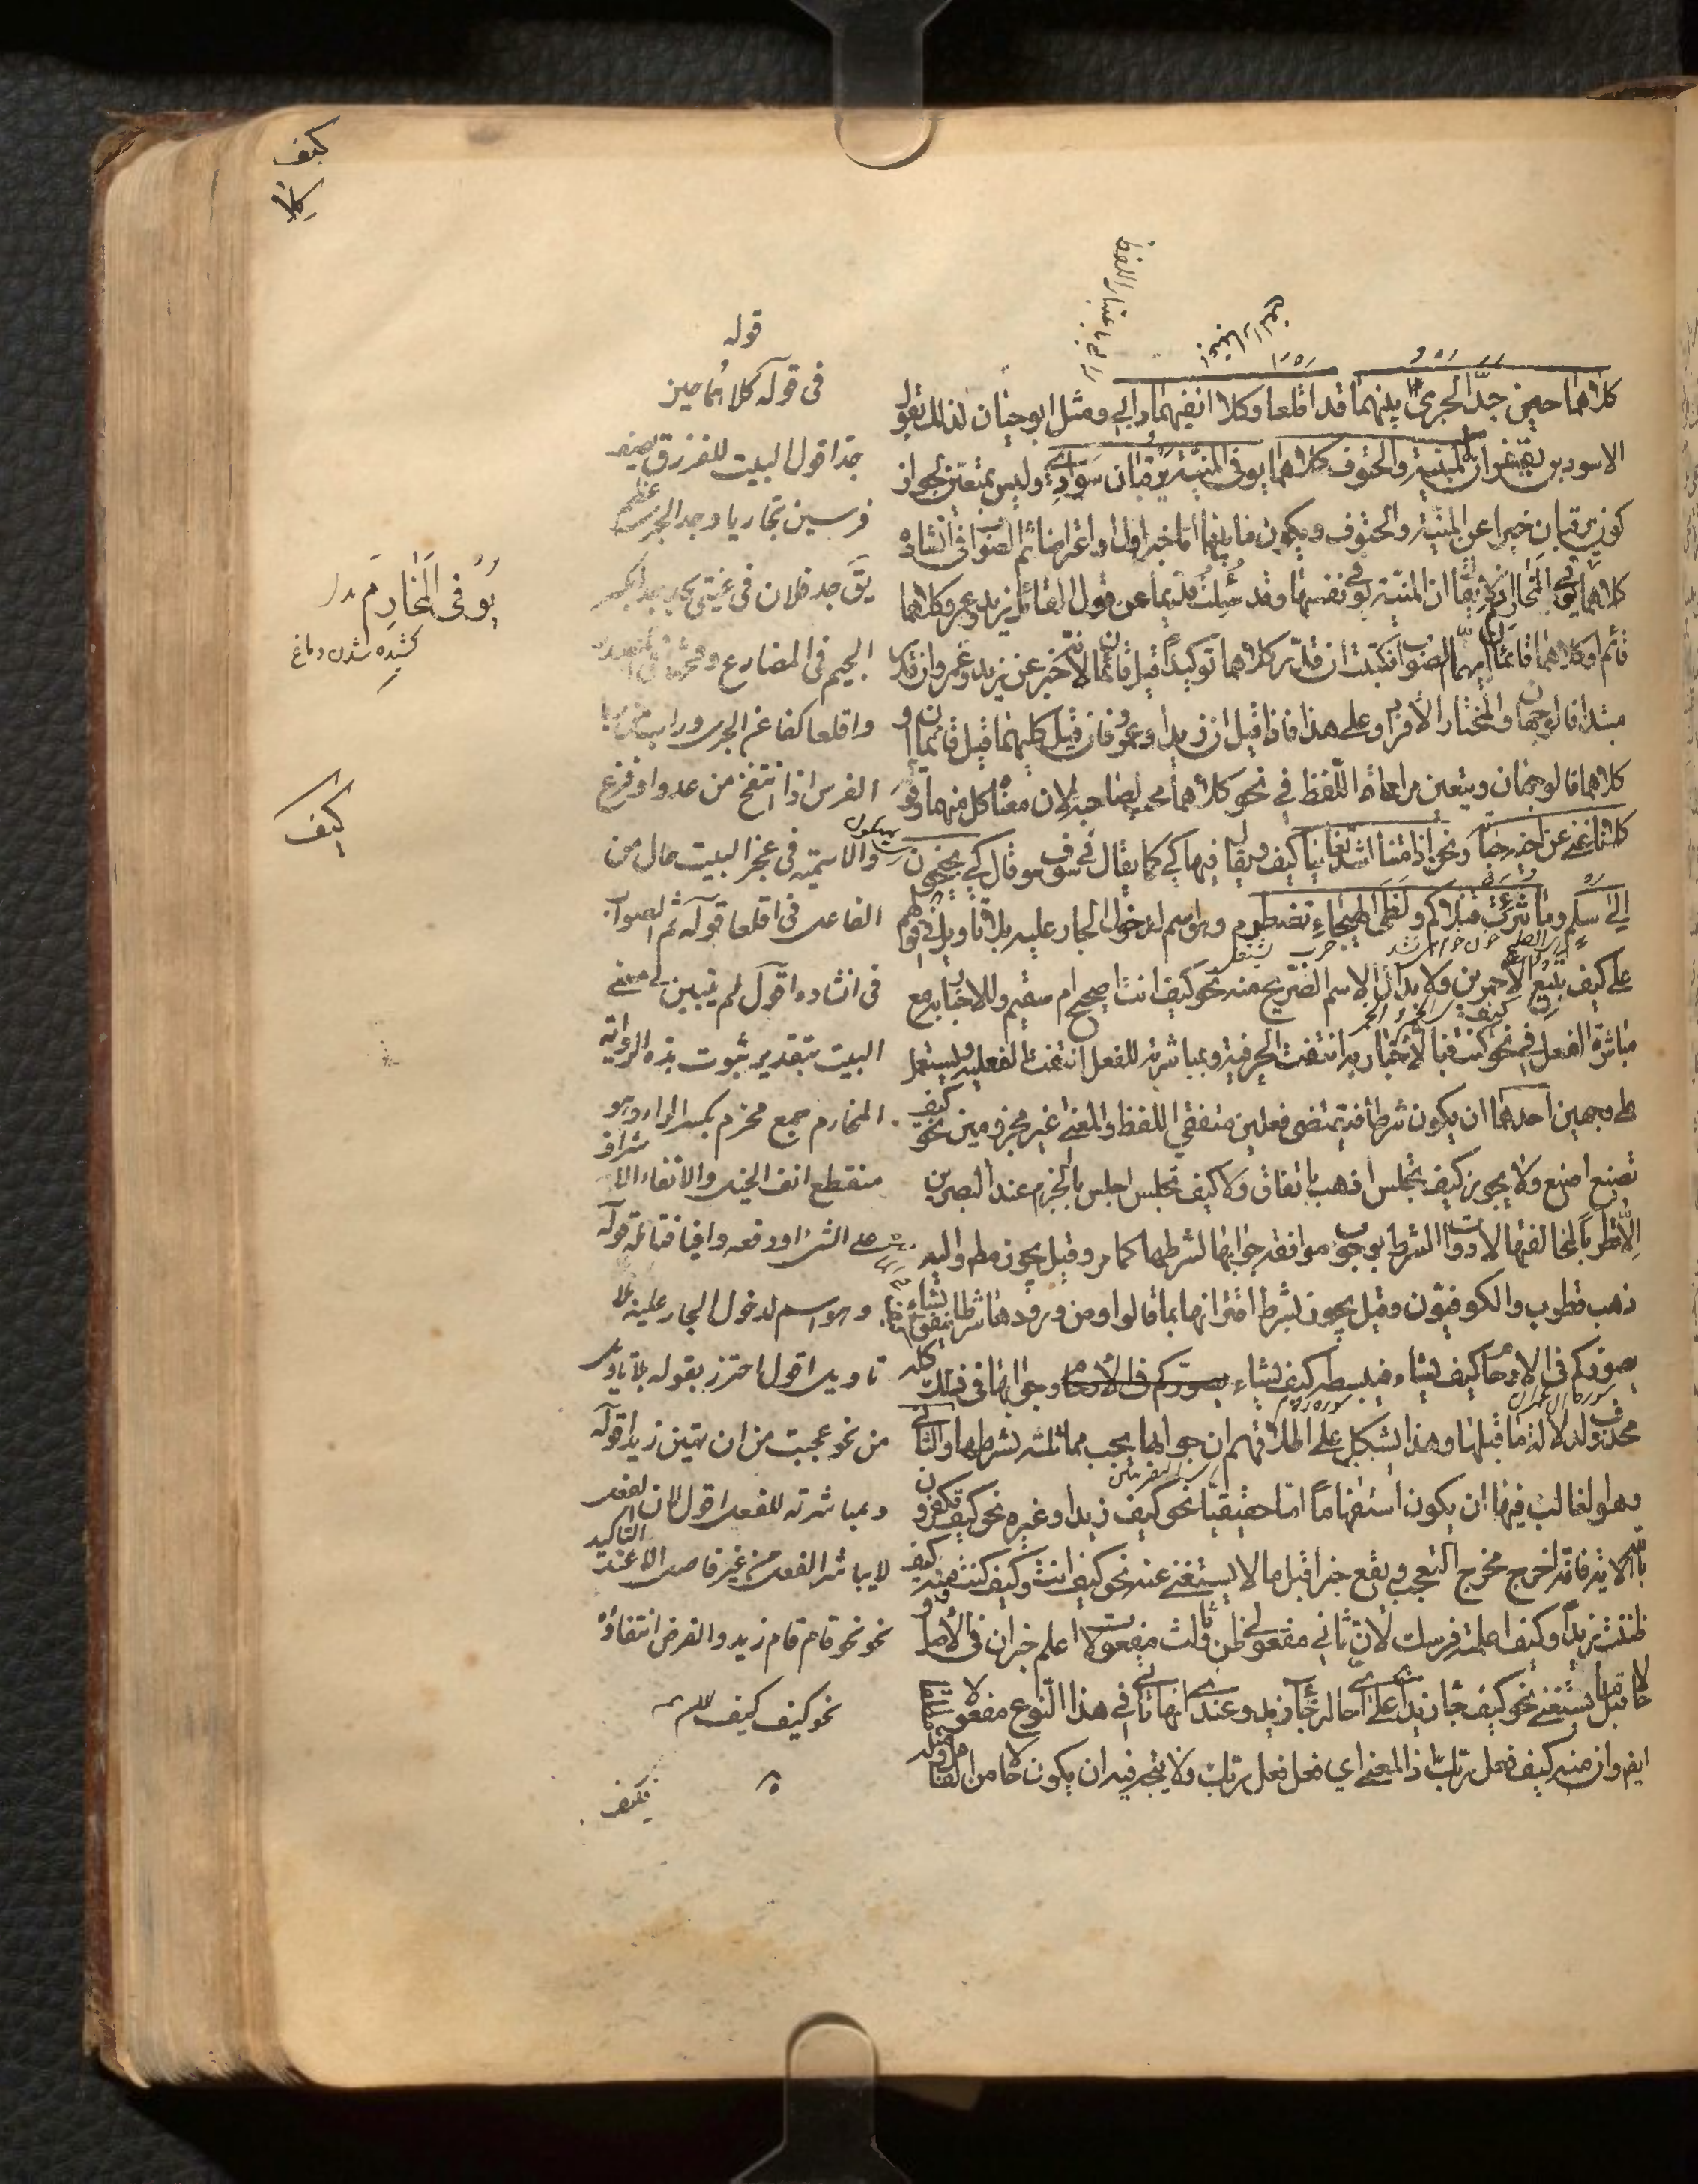 كيف
كلا
كلاهما حين جدّ الجرى بينهما قد اقلعا وكلا انفيهما رابي ومثل ابو حيان لذلك بقول
الاسود بن يعفر ان المنيّة والحتوف كلاهما يوفي المنيّة يرقبان سوادي وليس بمتعين لجواز
كون يرقبان خبرا عن المنيّة والحتوف ويكون ما بينهما اما خبرا اول او اعتراضا ثم الصواب في انشاده
كلاهما يوفي المخارم اذ لا يقال ان المنيّة توفي نفسها وقد سئلت قديما عن قول القائل زيد وعمرو كلاهما
قائم او كلاهما قائمان ايهما الصواب فكتبت ان قدّر كلاهما توكيدا قيل قائمان لانّه خبر عن زيد وعمرو وان قدّر
مبتدا فالوجهان والمختار الافراد وعلى هذا فاذا قيل ان زيدا وعمرا فان قيل كليهما قيل قائمان او
كلاهما فالوجهان ويتعين مراعاة اللّفظ في نحو كلاهما محبّ لصاحبه لان معناه كل منهما وقوله
كلانا غني عن اخيه حياته ونحن اذا متنا اشدّ تغانيا كيف ويقال فيها كي كما يقال في سوف سو قال كي تجنحون
الى سلم وما ثئرت قتلاكم ولظى الهيجاء تضطرم وهو اسم لدخول الجار عليه بلا تأويل في قولهم
على كيف تبيع الاحمرين ولابدال الاسم الصّريح منه نحو كيف انت اصحيح ام سقيم وللاخبار به مع
مباشرة الفعل في نحو كيف كنت فبالاخبار به انتفت الحرفية وبمباشرته للفعل انتفت الفعلية وتستعمل
على وجهين احدهما ان يكون شرطا فتقتضى فعلين متفقي اللّفظ والمعنى غير مجزومين نحو كيف
تصنع اصنع ولا يجوز كيف تجلس اذهب باتفاق ولا كيف تجلس اجلس بالجزم عند البصريين
الّا قطربا لمخالفتها لادوات الشرط بوجوب موافقة جوابها لشرطها كما مر وقيل يجوز مطلقا واليه
ذهب قطرب والكوفيّون وقيل يجوز بشرط اقترانها بما قالوا ومن ورودها شرطا ينفق كيف يشاء
يصوركم في الارحام كيف يشاء فيبسطه كيف يشاء وجوابها في ذلك كله
محذوف لدلالة ما قبلها وهذا يشكل على اطلاقهم ان جوابها يجب مماثلته لشرطها والثاني
وهو الغالب فيها ان يكون استفهاما امّا حقيقيّا نحو كيف زيد او غيره نحو كيف تكفرون
بالله الاية فانّه اخرج مخرج التعجب ويقع خبرا قبل ما لا يستغنى عنه نحو كيف انت وكيف كنت ومنه كيف
ظننت زيدا وكيف اعلمته فرسك لانّ ثاني مفعولي ظن وثالث مفعولات اعلم خبران في الاصل
وحالا قبل ما يستغنى نحو كيف جاء زيد اي على اي حالة جاء زيد وعندي انها تأتي في هذا النّوع مفعولا مطلقا
ايضا وان منه كيف فعل ربّك اذ المعنى اي فعل فعل ربّك ولا يتجه فيه ان يكون حالا من الفاعل
راى باعتبار اللفظ
باعتبار المعنى
قوله
في قوله كلاهما حين
جدا قول البيت للفرزدق يصف
فرسين تجاريا وجد الجرى عظم
يقال جد فلان في عيني يجد بكسر
الجيم في المضارع
واقلعا كفا عن الجرى
الفرس اذا انتفخ من عدو او فزع
والاسمية في عجز البيت حال من
الفاعل في اقلعا قوله ثم الصواب
في انشاده اقول لم يتبين لي معنى
البيت بتقدير ثبوت هذه الرواية
المخارم جمع مخرم بكسر الراء وهو
منقطع انف الجبل والايفاء الاشراف
على الشئ
وهو اسم لدخول الجار عليه بلا
تاويل اقول احترز بقوله بلا تاويل
من نحو عجبت من ان تهين زيدا قوله
وبمباشرته للفعل اقول لان الفعل
لا يباشر الفعل من غير فاصل الا عند التاكيد
نحو نحو قام قام زيد والفرض انتفاؤه
نحو كيف كيف
يُوفى المَخارِم
كشيده شدن دماغ
كيف
فكيف